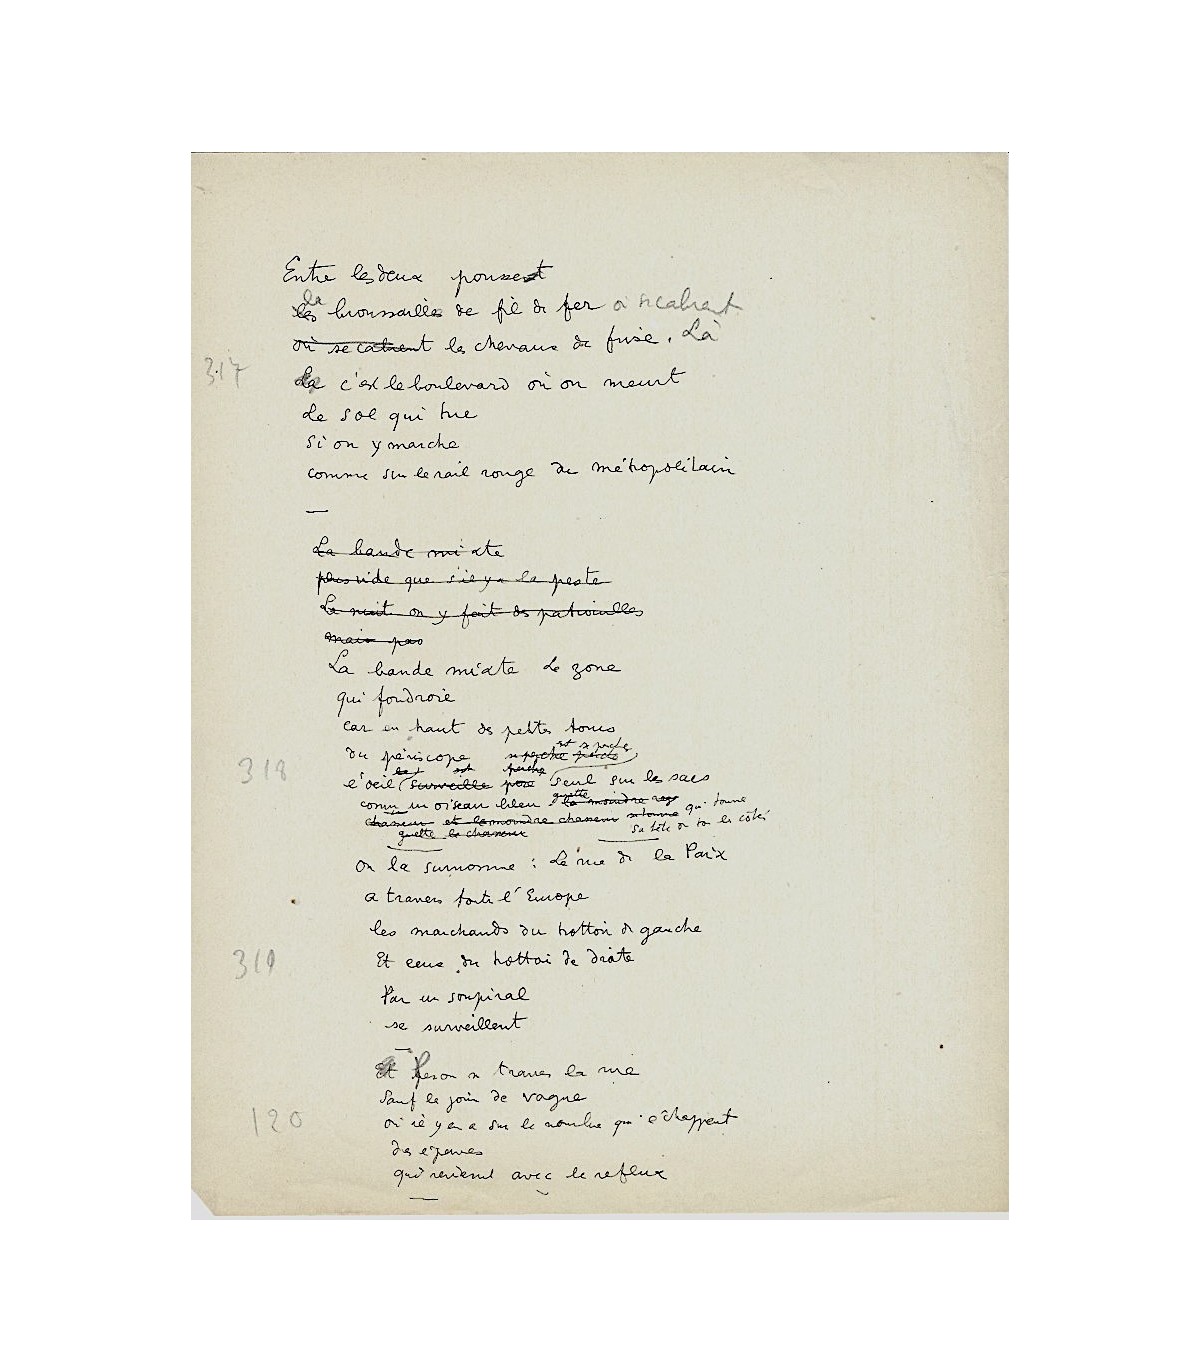 Entre les deux pousse
la broussaille de fil de fer où se cabrent
où se cabrent les chevaux de frise. Là
317
La c'est le boulevard où on meurt
Le sol qui tue
Si on y marche
comme sur le rail rouge du métropolitain
—
La bande mixte
plus vide que s'il y a la peste
La nuit on y fait des patrouilles
mais pas
La bande mixte La zone
qui foudroie
car en haut des petites tours
du périscope
318
l'œil surveille seul sur les sacs
comme un oiseau bleu guette la moindre
chasseur et le moindre chasseur qui tourne
guette le chasseur sa tête de tous les côtés
On la surnomme : La rue de la Paix
a travers toute l'Europe
les marchands du trottoir de gauche
319
Et ceux du trottoir de droite
Par un soupirail
se surveillent
—
Et Personne ne traverse la rue
Sauf le jour de vague
120
où il y en a sur le nombre qui échappent
des épaves
qui reviennent avec le reflux
—